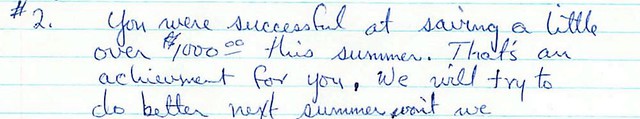 #2. You were successful at saving a little
over $1000.00 this summer. That's an
achievment for you. We will try to
do better next summer, won't we